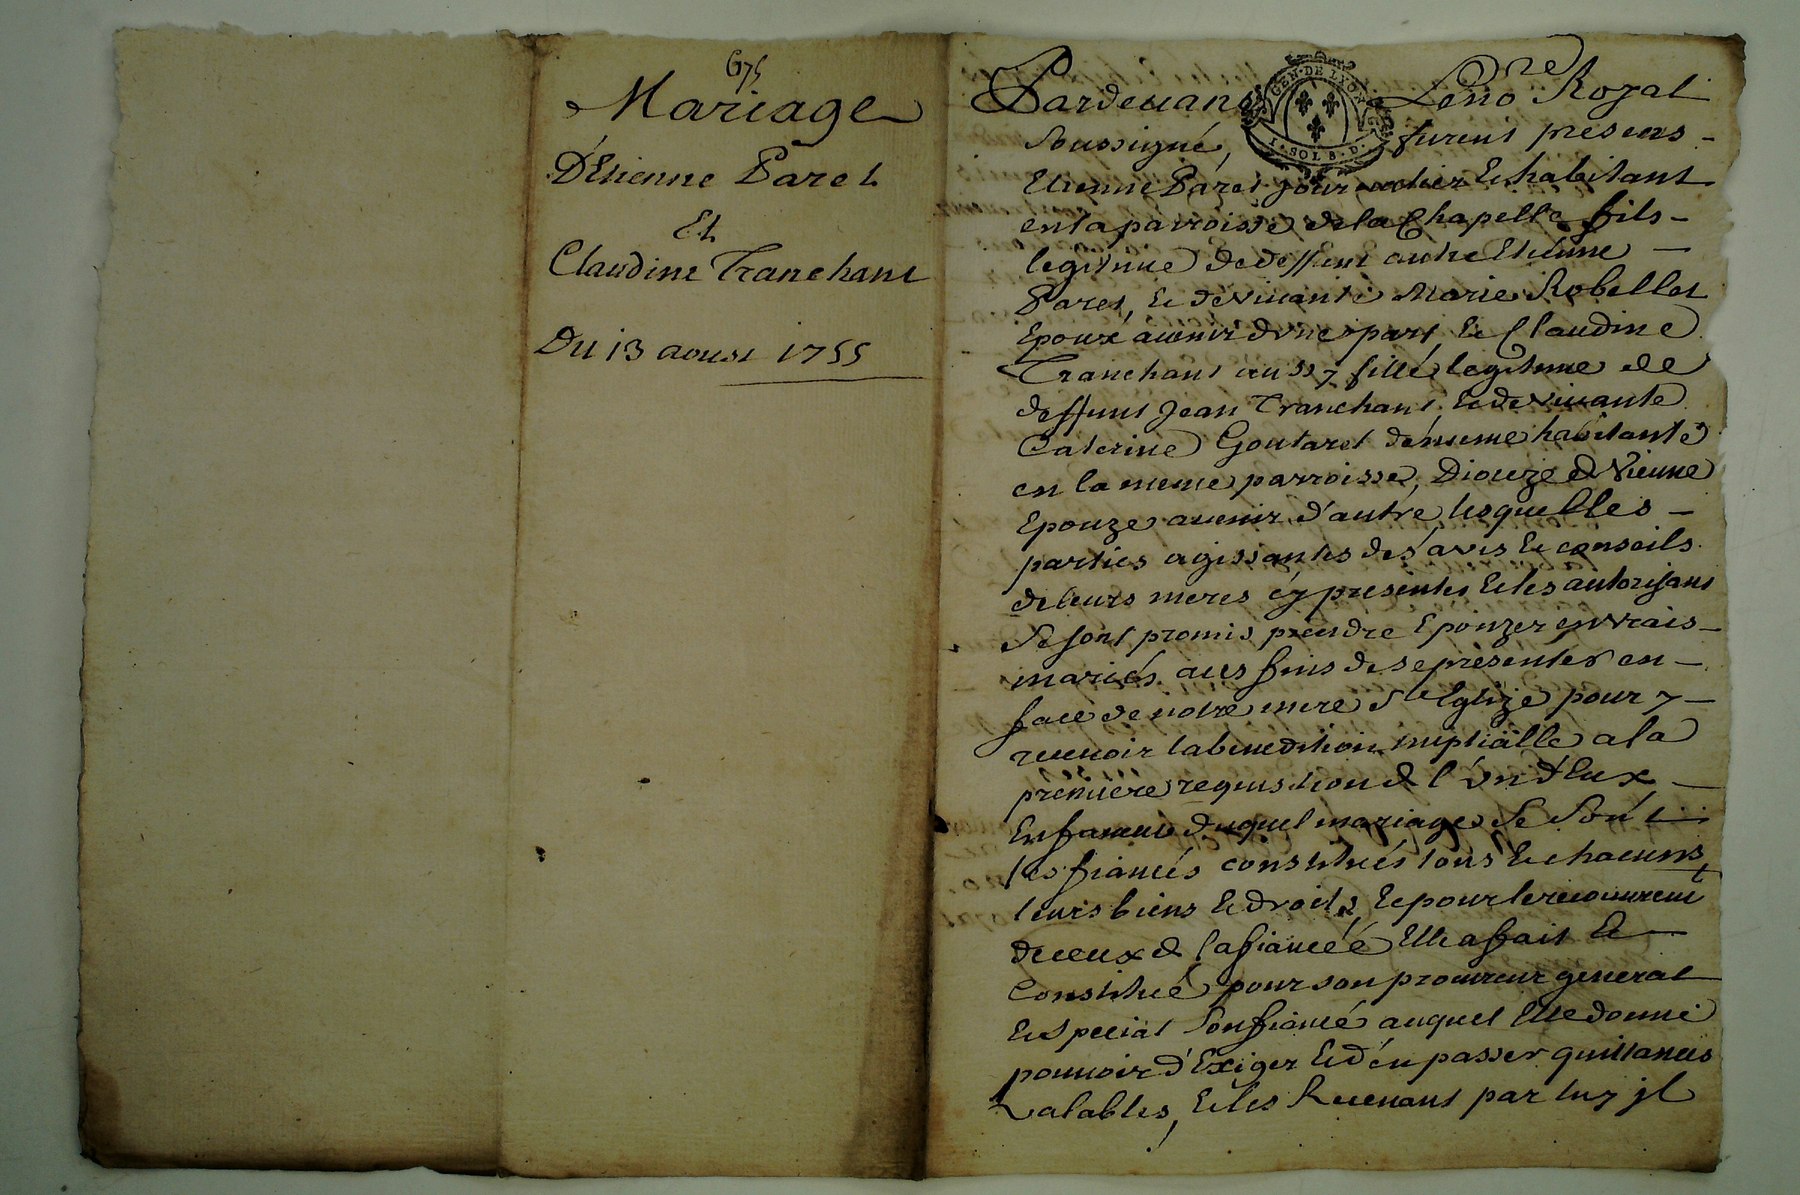 675
Mariage
D'Etienne Paret
Et
Claudine Tranchant
Du 13 aoust 1755
GEN·DE LYON
1·SOL 8·D·
Pardevant Le no.re Royal
Soussigné, furent presens
Etienne Paret journalier & habitant
en la parroisse de la Chapelle fils
legitime de deffunt autre Etienne
Paret, & de vivante Marie Robellet
Epoux avenir d'vne part, & Claudine
Tranchant aussy fille legitime de
deffunt Jean Tranchant, & de vivante
Caterine Goutaret de meme habitante
en la meme parroisse, Diouzé de Vienne
Epouze avenir d'autre, lesquelles
parties agissantes des avis & conseils
de leurs meres cy presentes & les autorisans
se sont promis prendre Epouzer en vrais
mariés aus fins de se présenter en
face de notre mere S.te Eglize pour y
recevoir la benedition nuptialle a la
premiere requisition de l'vn d'Eux
En faveur duquel mariage se sont
les fiancés constitués tous & chacuns
leurs biens & droits, & pour le recouvrem.t
de ceux de la fiancée Elle a fait &
constitué pour son procureur general
& special son fiancé auquel Elle donne
pouvoir d'Exiger & d'en passer quittances
valables, & les Recevant par luy jl